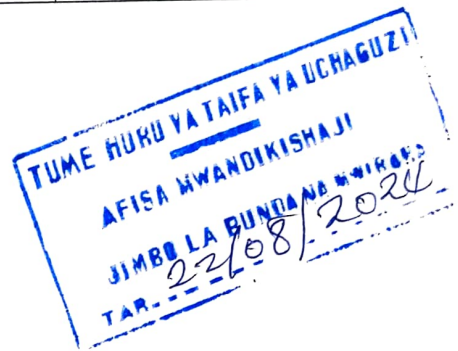 TUME HURU YA TAIFA YA UCHAGUZI
AFISA MWANDIKISHAJI
JIMBO LA BUNDA NA MWIBARA
TAR. 22/08/2024